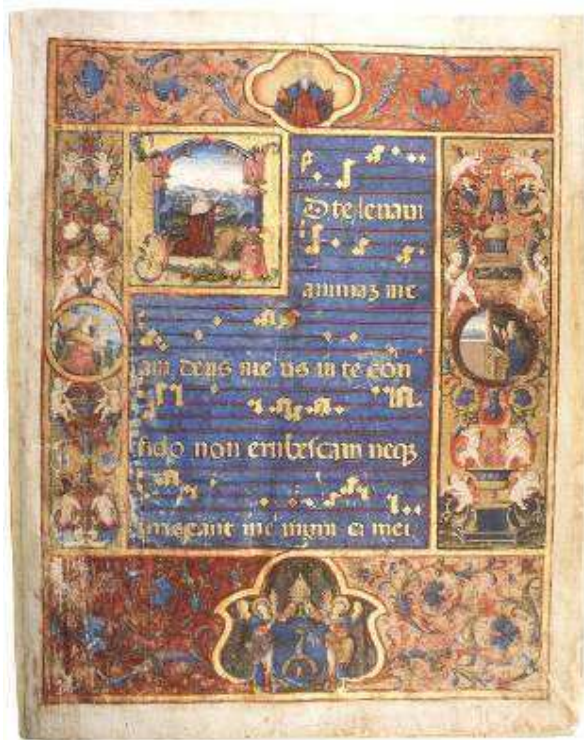 Ad te levavi
animaz me
am deus me us in te con
fido non erubescam neqz
irrideant me inimi ci mei